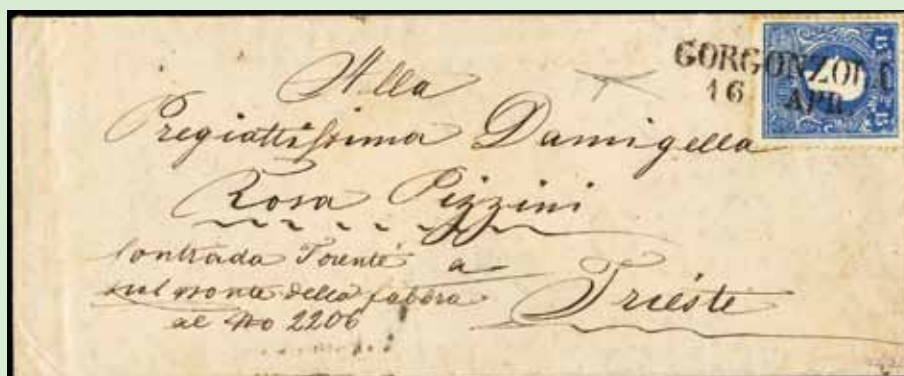 GORGONZOLA
16 APR
15 15
Alla
Pregiattissima Damigella
Rosa Pizzini
Contrada Torente a
sul ponte della fabbra Trieste
al No 2206